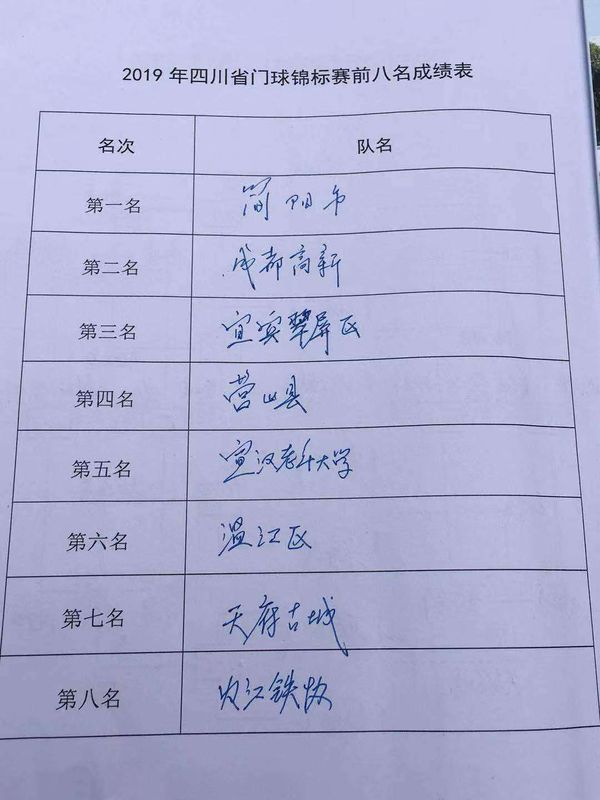 2019年四川省门球锦标赛前八名成绩表
名次 队名
第一名 简阳市
第二名 成都高新
第三名 宜宾翠屏区
第四名 营山县
第五名 宣汉老年大学
第六名 温江区
第七名 天府古城
第八名 内江铁牧